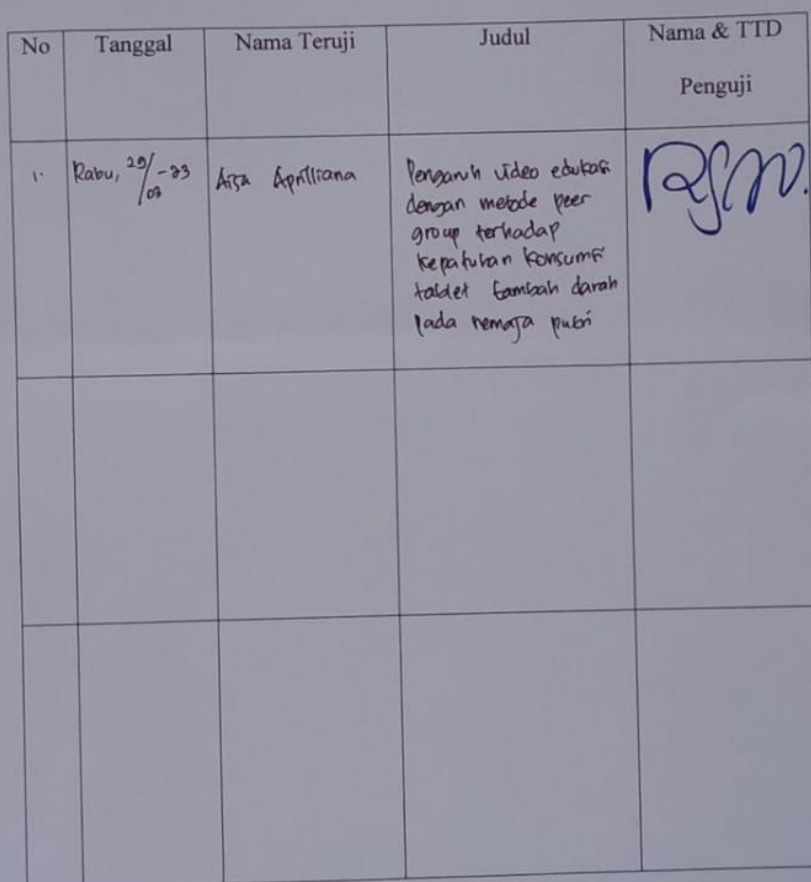 No Tanggal Nama Teruji Judul Nama & TTD
Penguji
1. Rabu, 29/03-23 Aisa Aprilliana Pengaruh video edukasi
dengan metode peer
group terhadap
kepatuhan konsumsi
tablet tambah darah
pada remaja putri